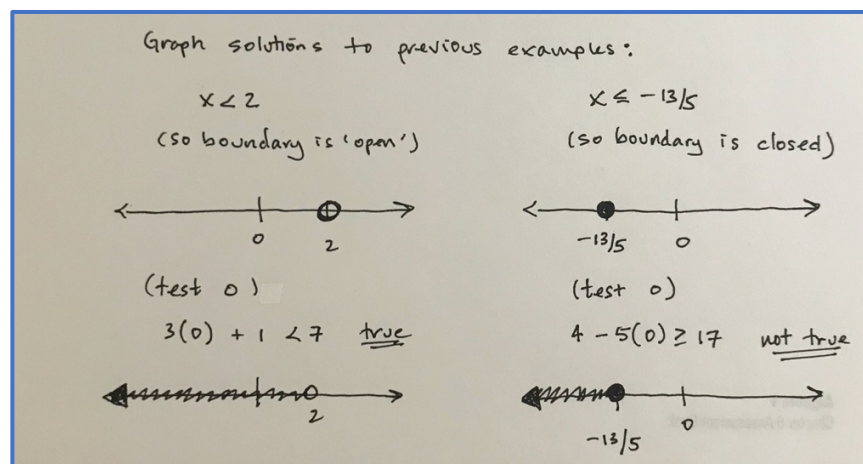 Graph solutions to previous examples:
x < 2
(so boundary is 'open')
0
2
(test 0)
3(0) + 1 < 7 true
2
x ≤ -13/5
(so boundary is closed)
-13/5
0
(test 0)
4 - 5(0) ≥ 17 not true
-13/5
0